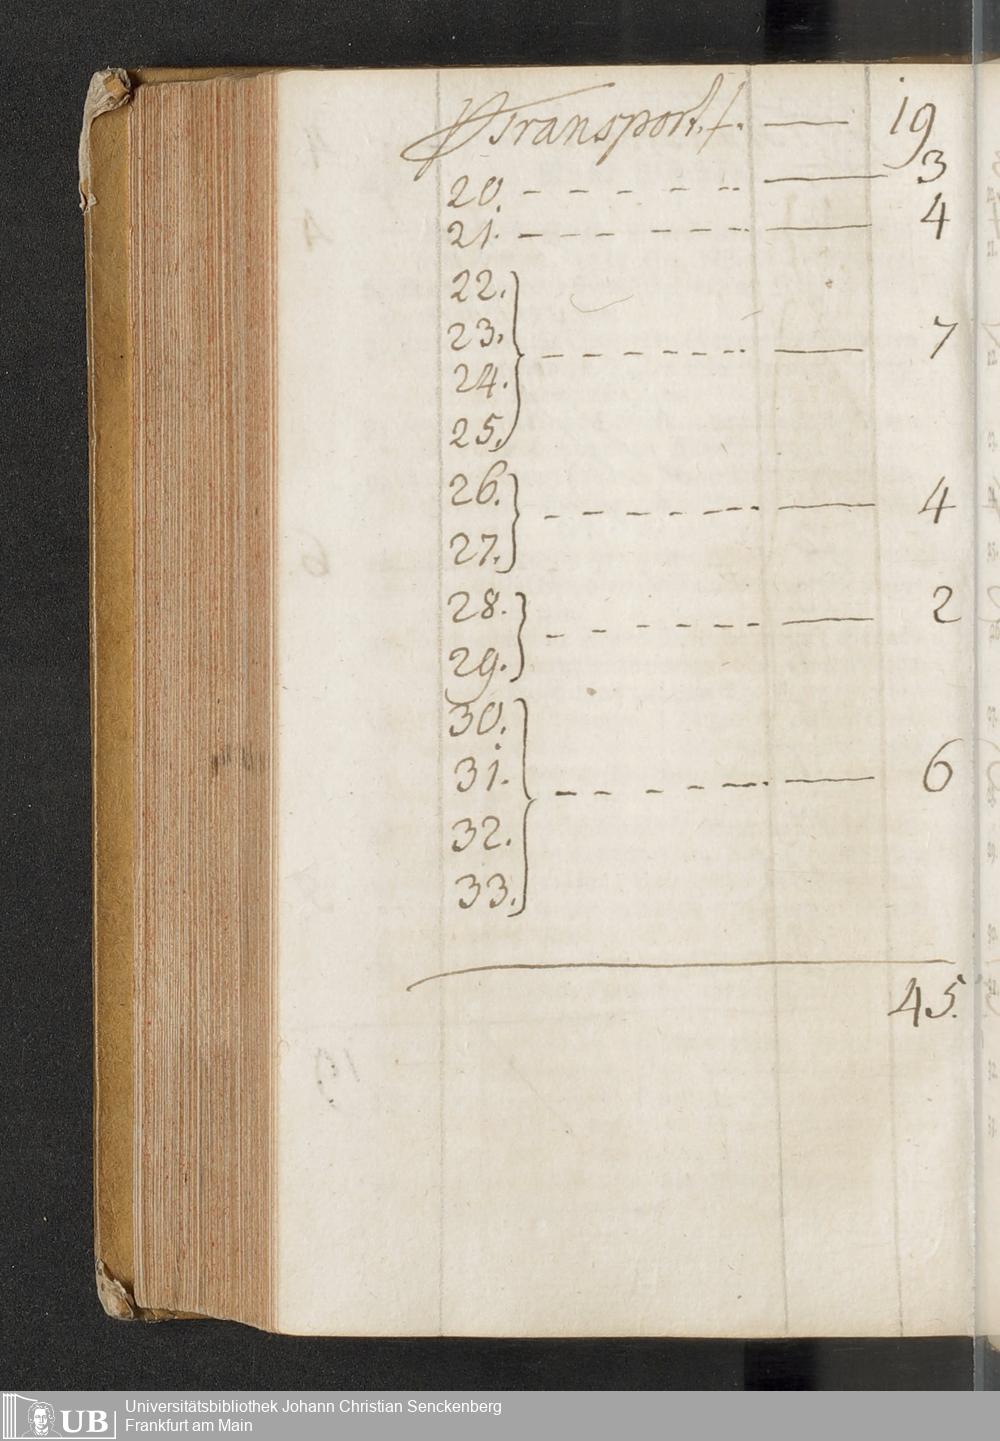 Transport. f. — 19
20. - - - - - - — 3
21. - - - - - - — 4
22.
23.
24. - - - - - - — 7
25.
26.
27. - - - - - - — 4
28.
29. - - - - - - — 2
30.
31. - - - - - - — 6
32.
33.
45.
UB
Universitätsbibliothek Johann Christian Senckenberg
Frankfurt am Main